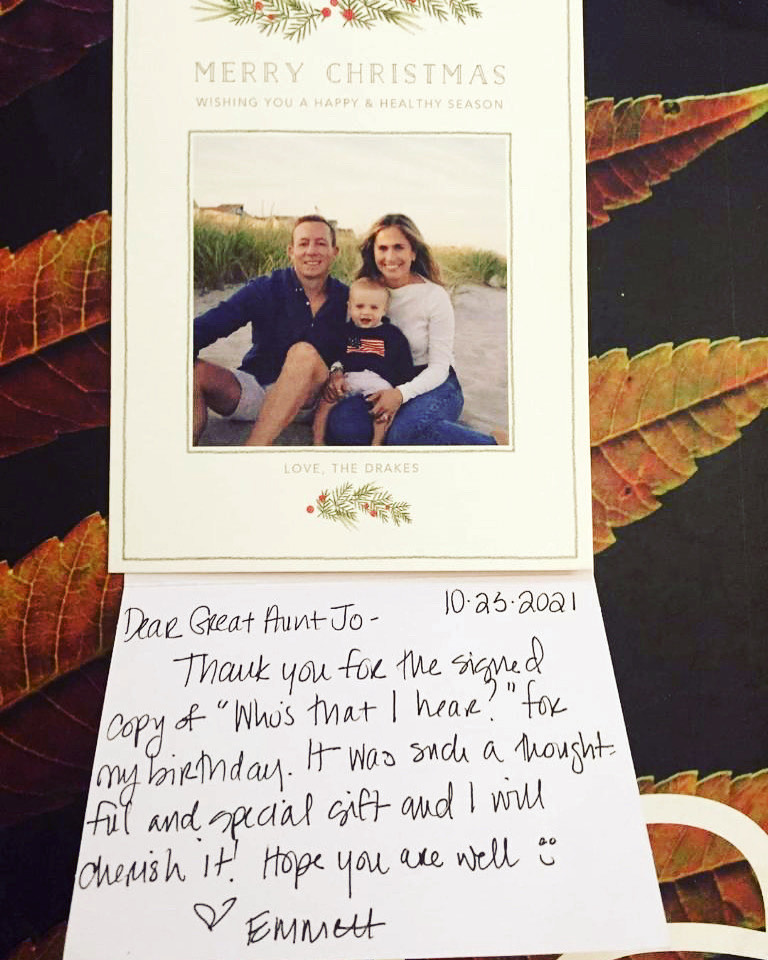 MERRY CHRISTMAS
WISHING YOU A HAPPY & HEALTHY SEASON
LOVE, THE DRAKES
10.25.2021
Dear Great Aunt Jo -
Thank you for the signed
copy of "Who's that I hear?" for
my birthday. It was such a thought-
ful and special gift and I will
cherish it! Hope you are well
Emmett